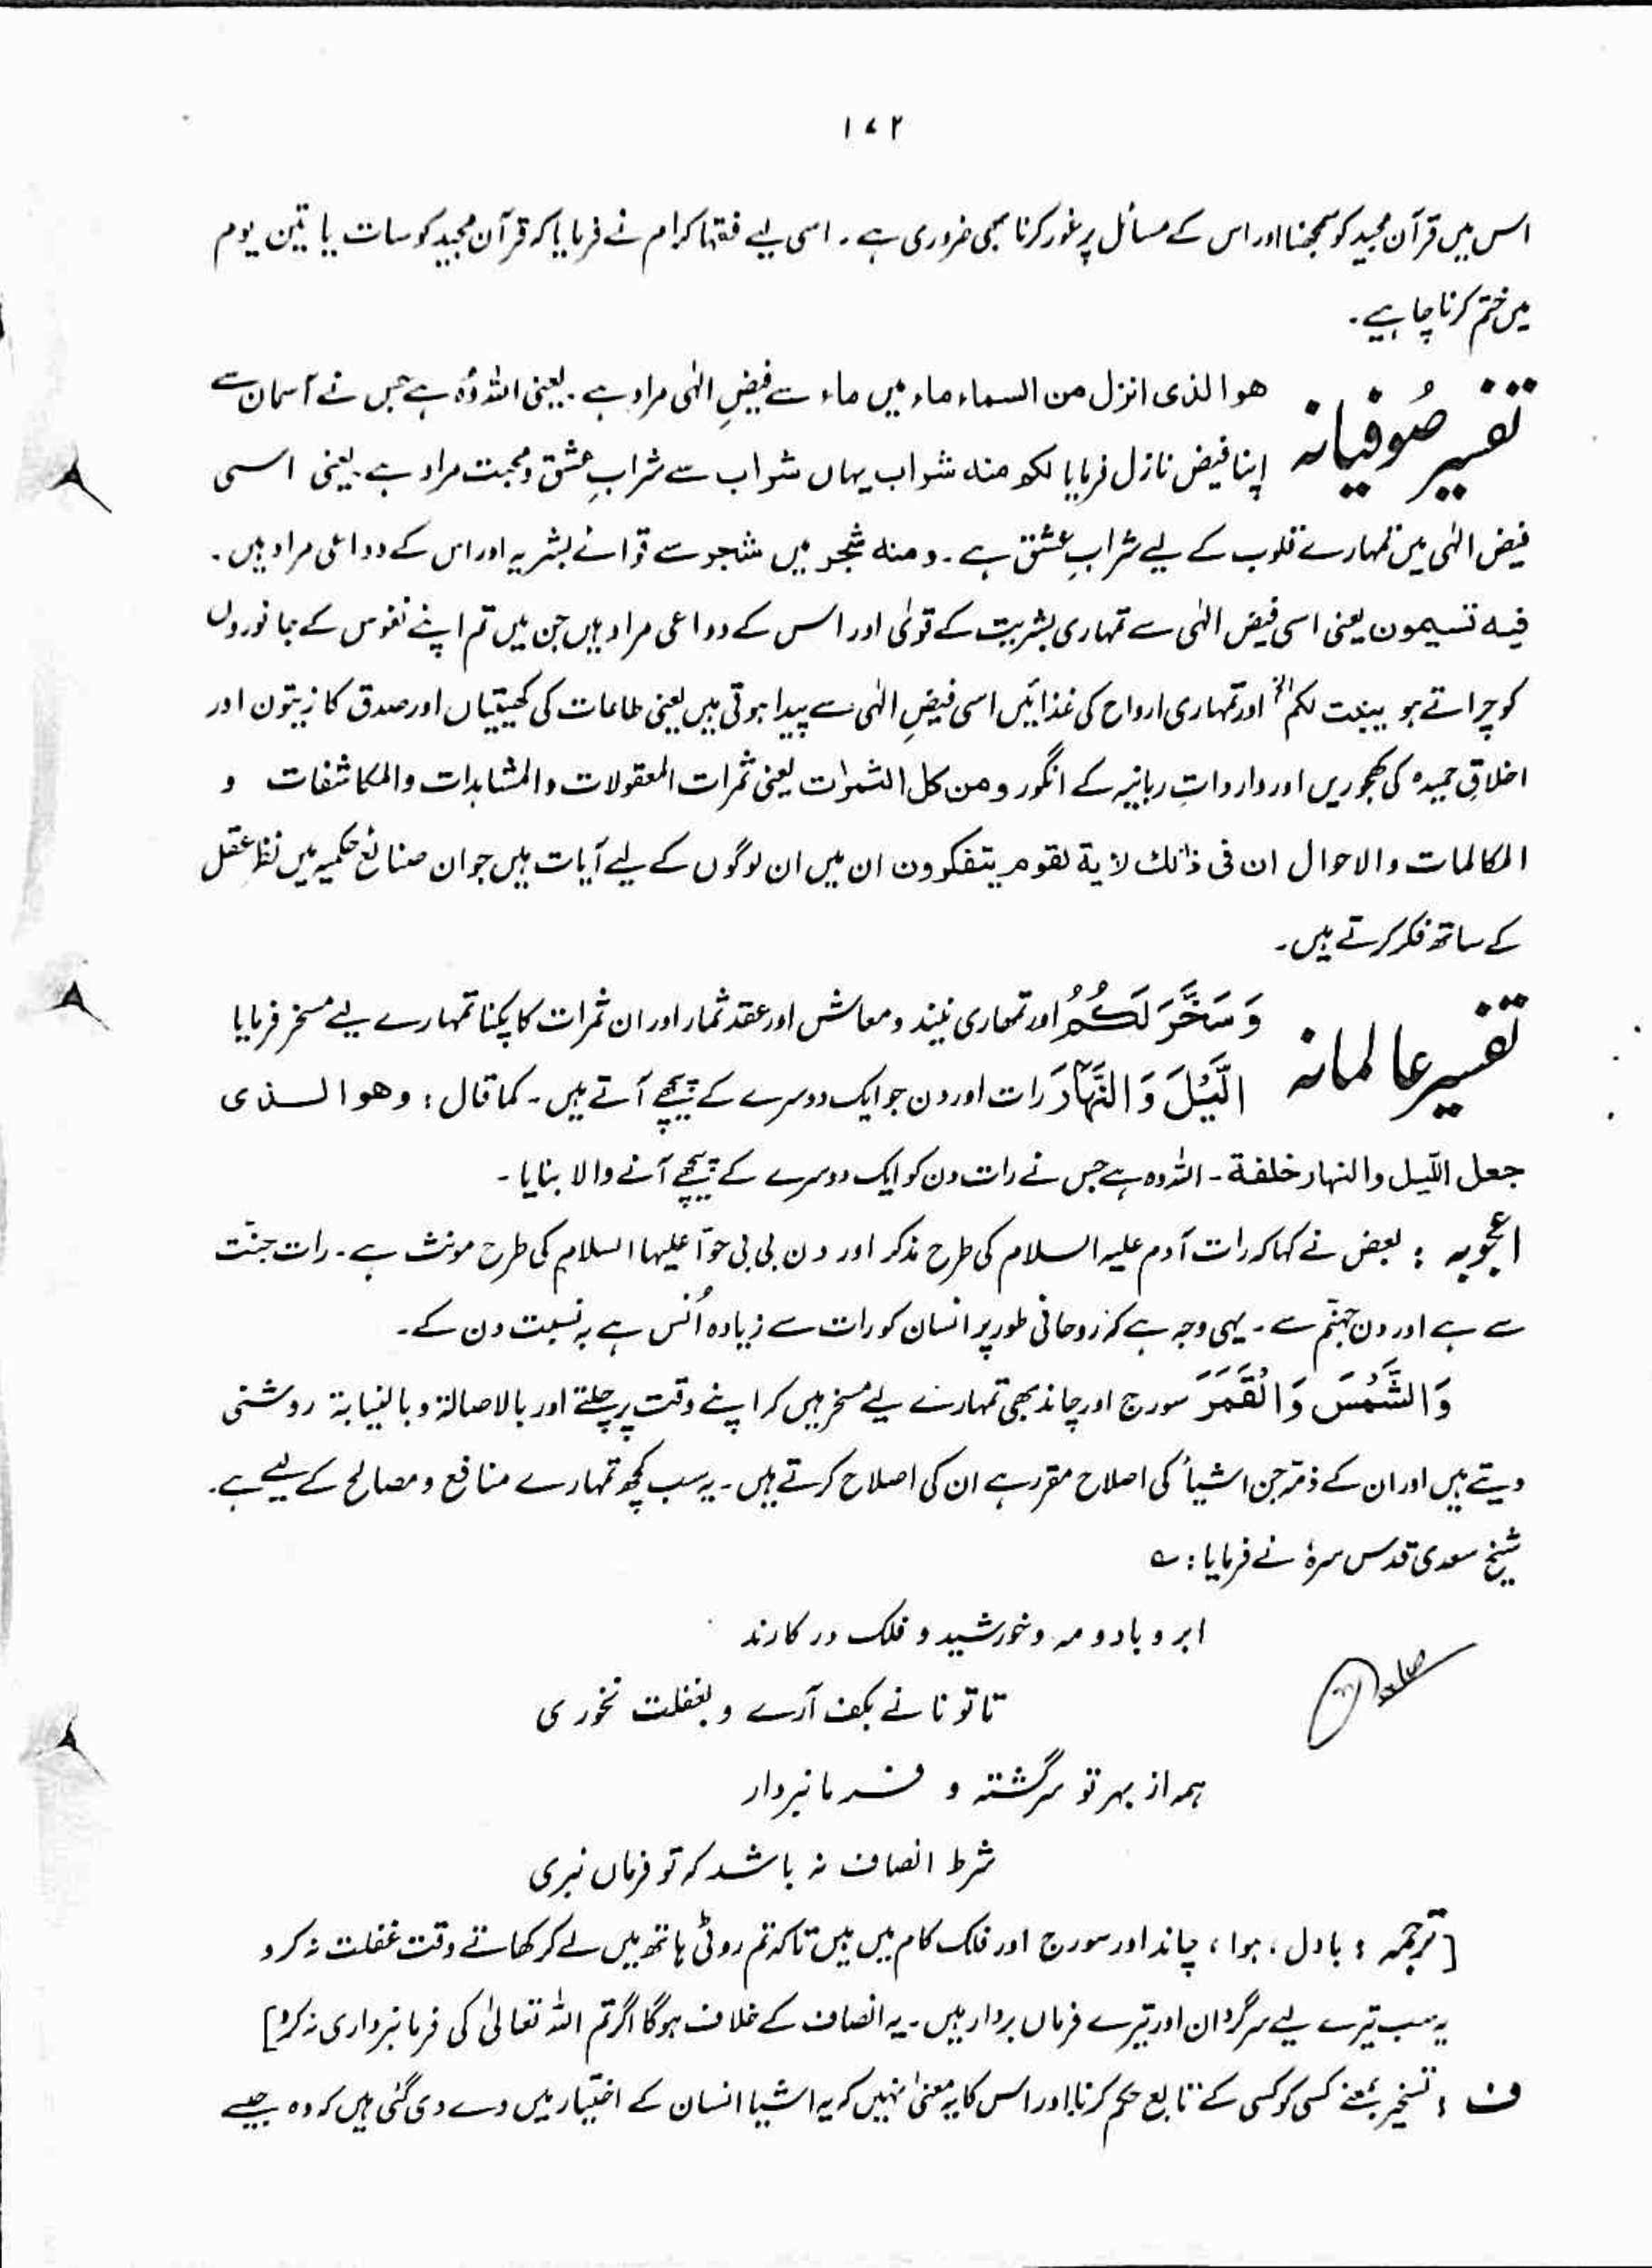 ۱۷۲
اس میں قرآن مجید کو سمجھنا اور اس کے مسائل پر غور کرنا بھی ضروری ہے۔ اسی لیے فقہا کرام نے فرمایا کہ قرآن مجید کو سات یا تین یوم
میں ختم کرنا چاہیے۔
تفسیر صُوفیانہ
ھو الذی انزل من السماء ماء میں ماء سے فیضِ الٰہی مراد ہے۔ یعنی اللہ وُہ ہے جس نے آسمان سے
اپنا فیض نازل فرمایا لکم منہ شراب یہاں شراب سے شرابِ عشق و محبت مراد ہے۔ یعنی اسی
فیض الٰہی میں تمہارے قلوب کے لیے شرابِ عشق ہے۔ ومنہ شجر میں شاجر سے قوائے بشریہ اور اس کے دواعی مراد ہیں۔
فیہ تسیمون یعنی اسی فیض الٰہی سے تمہاری بشریت کے قوٰی اور اس کے دواعی مراد ہیں جن میں تم اپنے نفوس کے جانوروں
کو چراتے ہو ینبت لکم الخ اور تمہاری ارواح کی غذائیں اسی فیضِ الٰہی سے پیدا ہوتی ہیں یعنی طاعات کی کھیتیاں اور صدق کا زیتون اور
اخلاقِ حمیدہ کی کھجوریں اور وارداتِ ربانیہ کے انگور ومن کل الثمرات یعنی ثمرات المعقولات والمشاہدات والمکاشفات و
المکالمات والاحوال ان فی ذالک لاٰیۃ لقوم یتفکرون ان میں ان لوگوں کے لیے آیات ہیں جو ان صنائع حکمیہ میں نظرِ عقل
کے ساتھ فکر کرتے ہیں۔
تفسیر عالمانہ
وَسَخَّرَ لَکُمُ اور تمھاری نیند و معاش اور عقد ثمار اور ان ثمرات کا پکنا تمہارے لیے مسخر فرمایا
الَّیْلَ وَالنَّھَارَ رات اور دن جو ایک دوسرے کے پیچھے آتے ہیں۔ کما قال: وھو الذی
جعل الّیل والنہار خلفۃ۔ اللہ وہ ہے جس نے رات دن کو ایک دوسرے کے پیچھے آنے والا بنایا۔
اعجوبہ: بعض نے کہا کہ رات آدم علیہ السلام کی طرح مذکر اور دن بی بی حوّا علیہا السلام کی طرح مونث ہے۔ رات جنّت
سے ہے اور دن جہنّم سے۔ یہی وجہ ہے کہ روحانی طور پر انسان کو رات سے زیادہ اُنس ہے بہ نسبت دن کے۔
وَالشَّمْسَ وَالْقَمَرَ سورج اور چاند بھی تمہارے لیے مسخر ہیں کہ اپنے وقت پر چلتے اور بالاصالۃ و بالنیابۃ روشنی
دیتے ہیں اور ان کے ذمّہ جن اشیأ کی اصلاح مقرر ہے ان کی اصلاح کرتے ہیں۔ یہ سب کچھ تمہارے منافع و مصالح کے لیے ہے۔
شیخ سعدی قدس سرہٗ نے فرمایا: ؎
ابر و باد و مہ و خورشید و فلک در کارند
تا تو نانے بکف آرے و بغفلت نخوری
ہمہ از بہر تو سرگشتہ و فرمانبردار
شرط انصاف نہ باشد کہ تو فرماں نبری
[ترجمہ: بادل، ہوا، چاند اور سورج اور فلک کام میں ہیں تاکہ تم روٹی ہاتھ میں لے کر کھاتے وقت غفلت نہ کرو
یہ سب تیرے لیے سرگردان اور تیرے فرماں بردار ہیں۔ یہ انصاف کے خلاف ہوگا اگر تم اللہ تعالیٰ کی فرمانبرداری نہ کرو]
ف: تسخیر بمعنے کسی کو کسی کے تابع حکم کرنا اور اس کا یہ معنیٰ نہیں کہ یہ اشیا انسان کے اختیار میں دے دی گئی ہیں کہ وہ جیسے